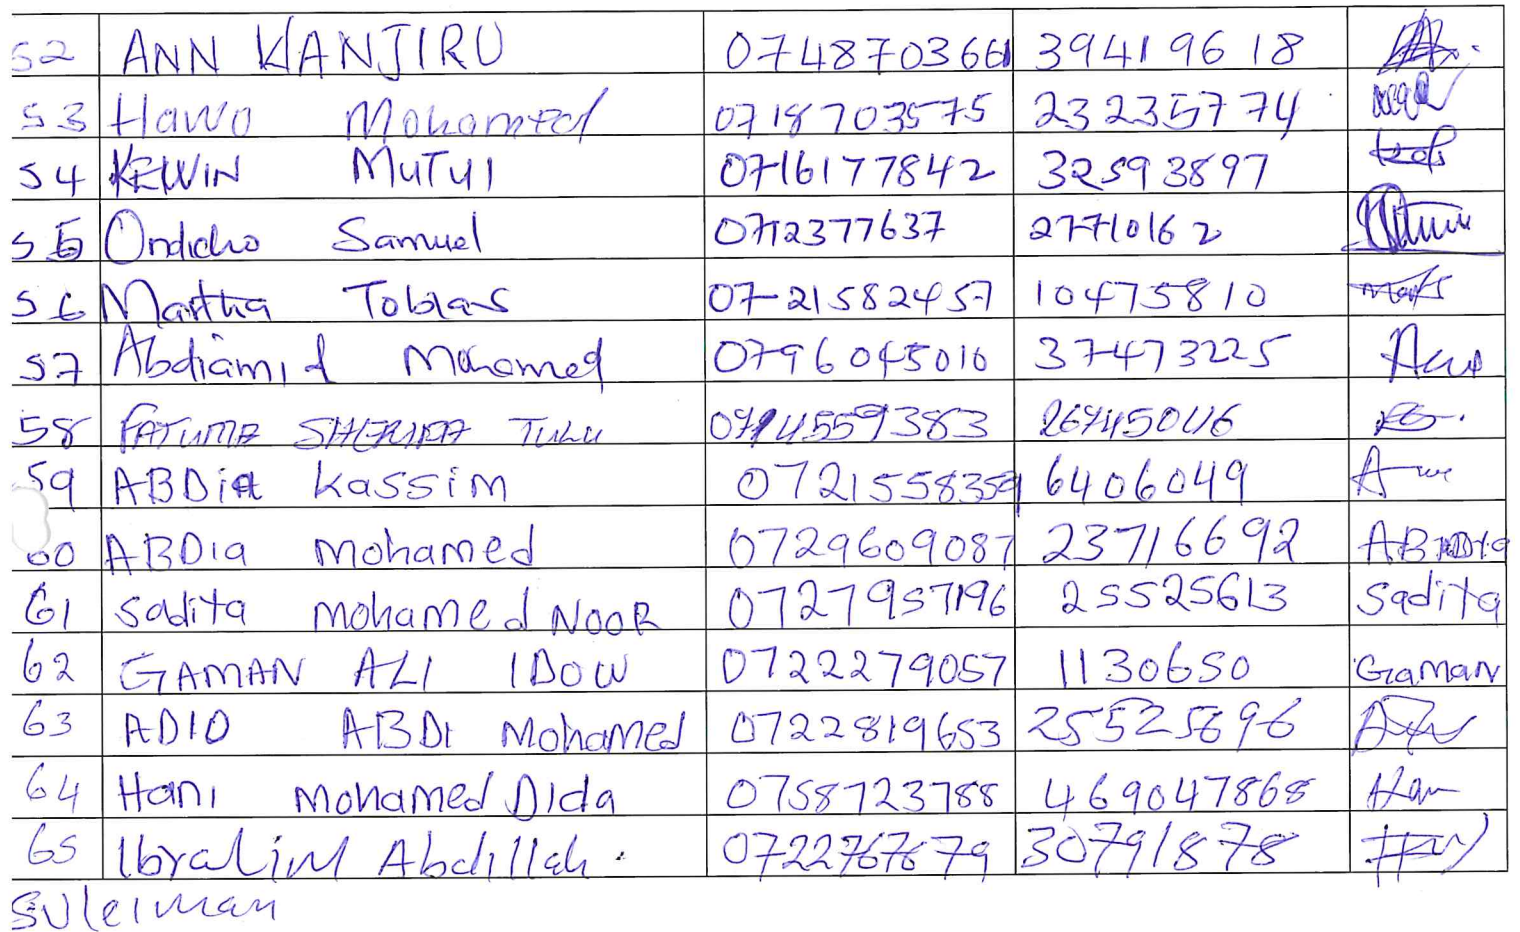 52 ANN WANJIRU 0748703661 39419618
53 Hawo Mohamed 0718703575 23235774
54 KEWIN MUTUI 0716177842 32593897
55 Ondicho Samuel 0712377637 27710162
56 Martha Tobias 07-21582457 10475810
57 Abdiamid Mohamed 0796045010 37473225
58 FATUMA TULU
59 ABDia Kassim 0721558359 6406049
60 ABDia Mohamed 0729609087 23716692 ABDIA
61 Sadita Mohamed NOOR 0727957196 25525613 Sadita
62 GAMAN ALI IDOW 0722279057 1130650 Gaman
63 ADIO ABDI Mohamed 0722819653 25525696
64 Hani Mohamed Dida 0758723788 469047868 Han
65 Ibrahim Abdillah. 0722767679 30791878
Suleiman